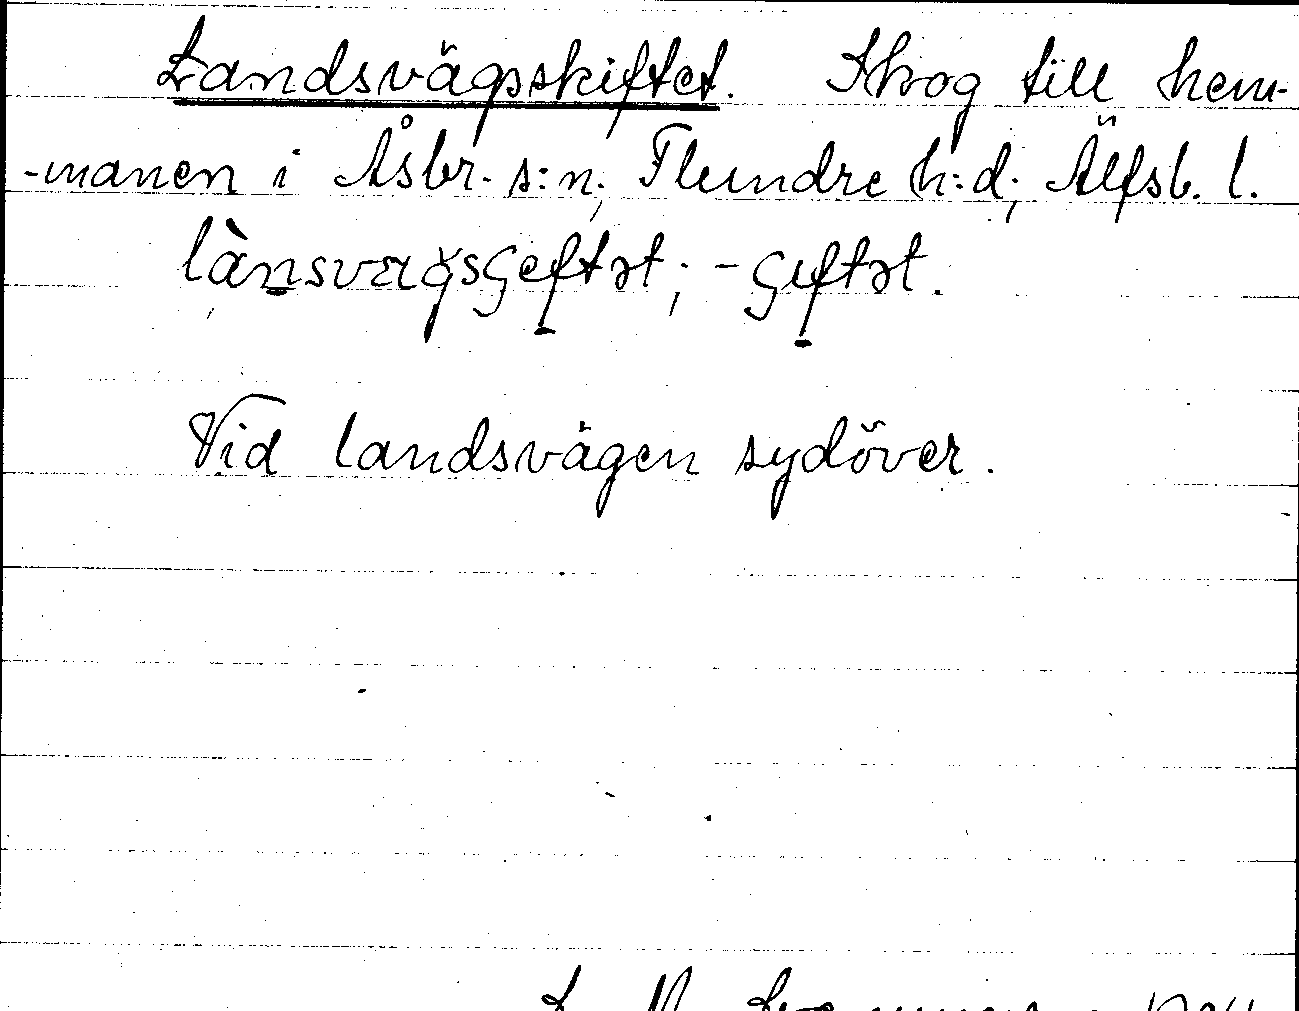 Landsvägsskiftet. Skog till hem-
-manen i Åsbr. s:n, Flundre h:d, Älfsb. l.
lànsvægsʂeftət; -ʂɩftət.
Vid landsvägen sydöver.